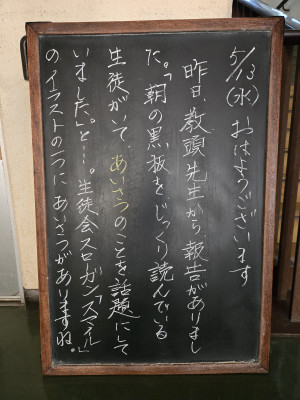 5/13(水) おはようございます
昨日、教頭先生から報告がありまし
た。「朝の黒板を、じっくり読んでいる
生徒がいて、あいさつのことを話題にして
いました。」と…。生徒会スローガン「スマイル」
のイラストの一つにあいさつがありますね。